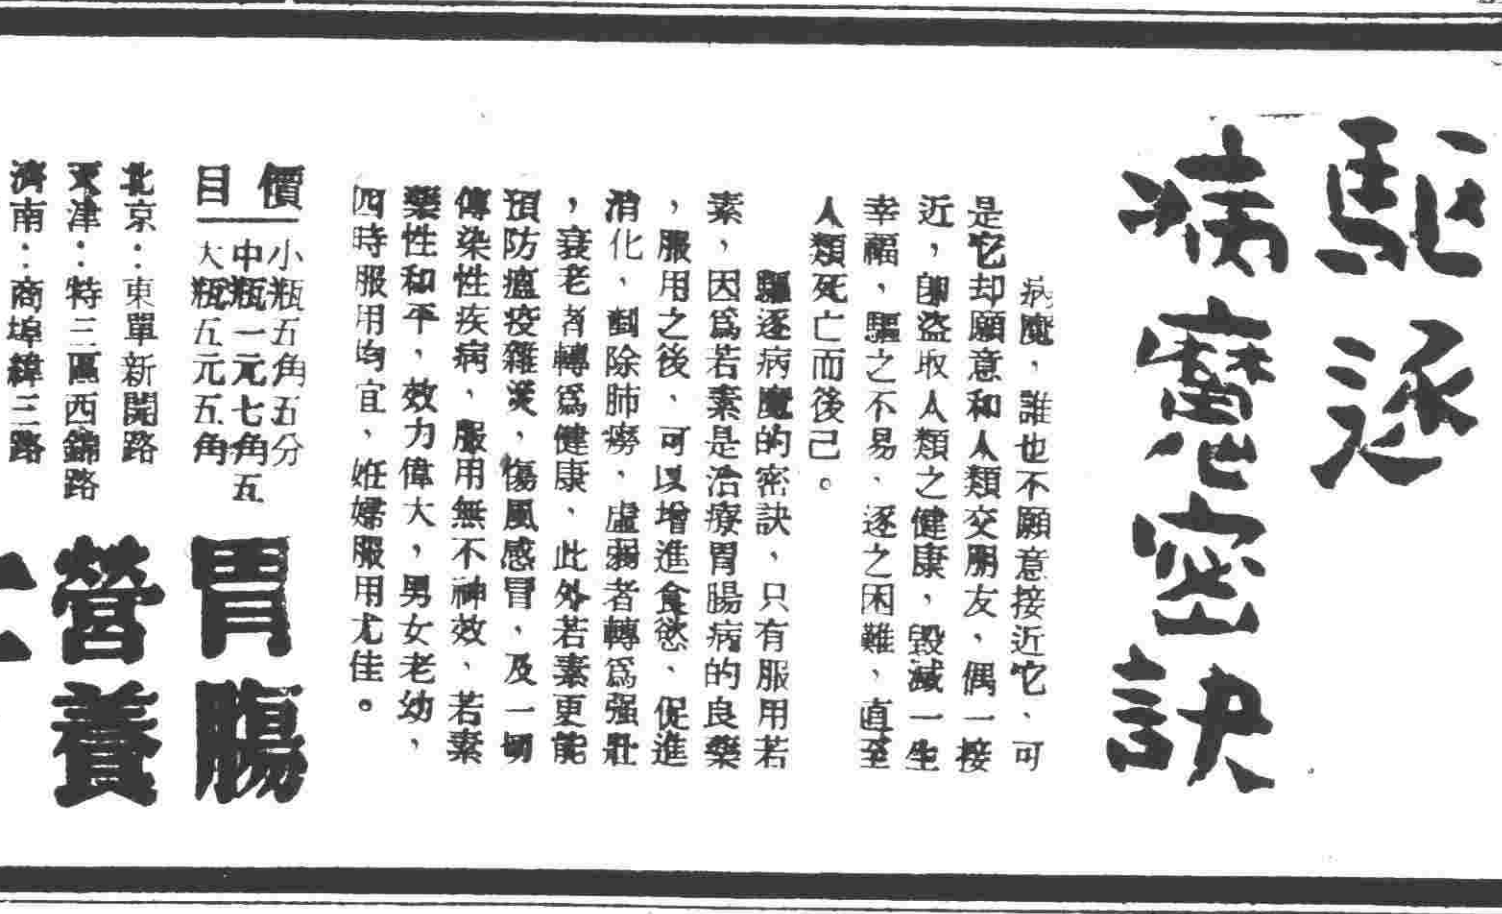 驅逐
病魔密訣
病魔，誰也不願意接近它、可
是它却願意和人類交朋友，偶一接
近，卽盜取人類之健康，毀滅一生
幸福，驅之不易、逐之困難，直至
人類死亡而後已。
驅逐病魔的密訣，只有服用若
素，因爲若素是治療胃腸病的良藥
，服用之後、可以增進食慾、促進
消化，剷除肺癆、虛弱者轉爲强壯
，衰老者轉爲健康、此外若素更能
預防瘟疫雜災，傷風感冒，及一切
傳染性疾病、服用無不神效、若素
藥性和平，效力偉大，男女老幼，
四時服用均宜、姙婦服用尤佳。
價目
小瓶五角五分
中瓶一元七角五
大瓶五元五角
胃腸
北京：東單新開路
天津：特三區西錦路
濟南：商埠緯三路
營養